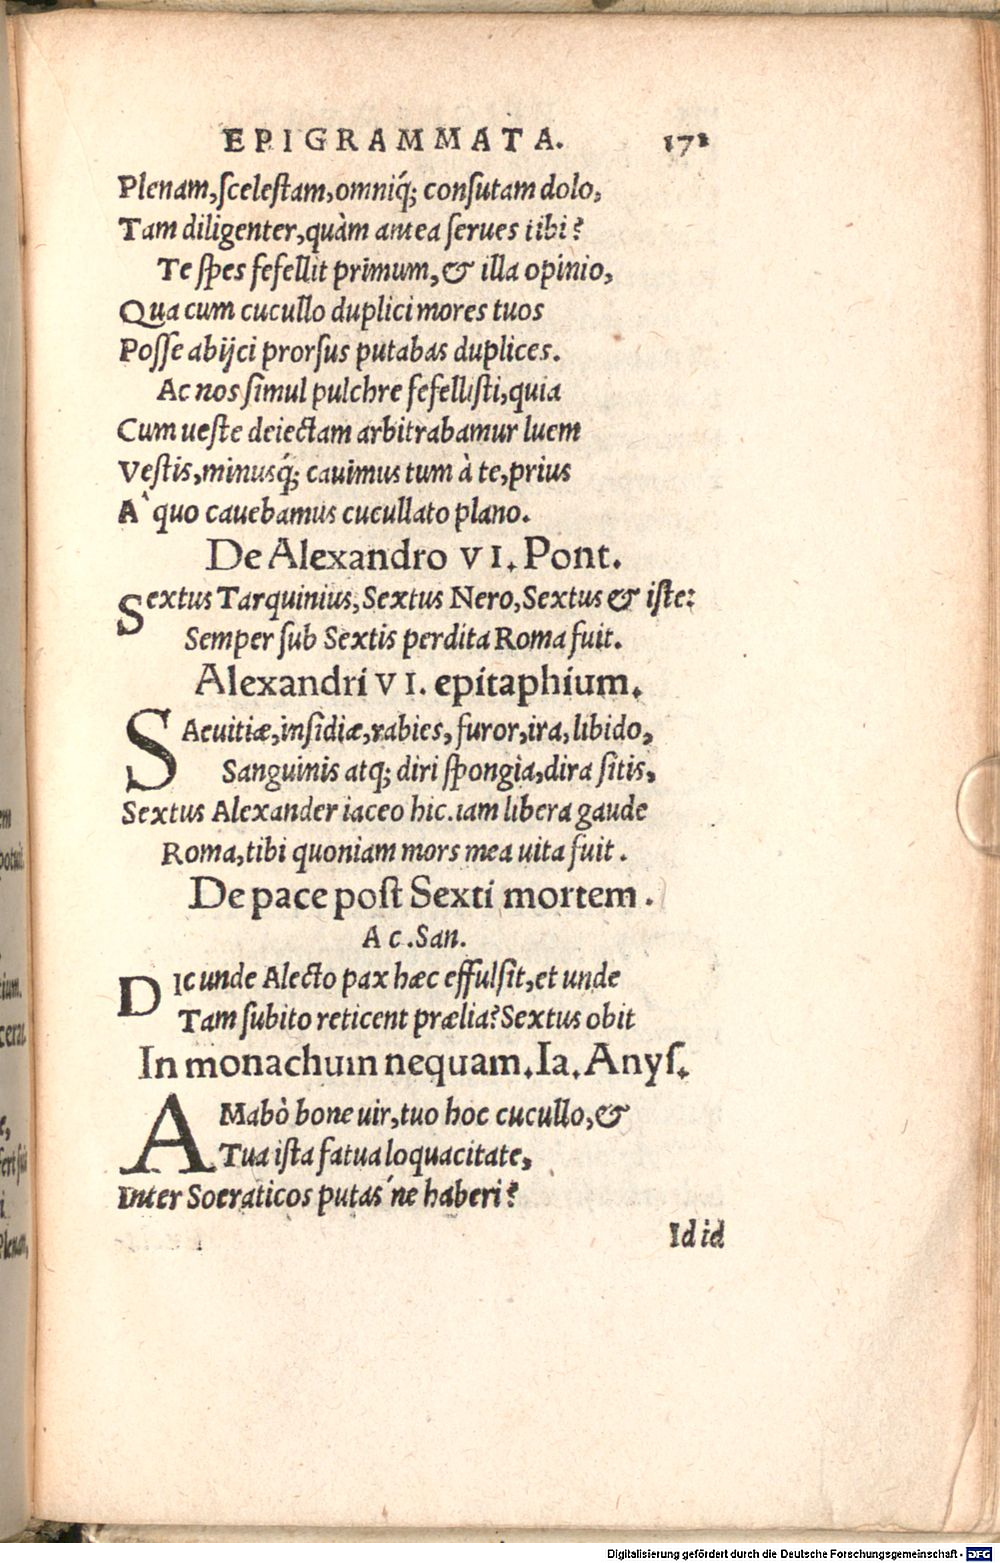 EPIGRAMMATA. 171
Plenam, scelestam, omniq́; consutam dolo,
Tam diligenter, quàm antea serues tibi?
Te spes fefellit primum, & illa opinio,
Qua cum cucullo duplici mores tuos
Posse abijci prorsus putabas duplices.
Ac nos simul pulchre fefellisti, quia
Cum ueste deiectam arbitrabamur luem
Vestis, minusq́; cauimus tum à te, prius
A` quo cauebamus cucullato plano.
De Alexandro VI. Pont.
Sextus Tarquinius, Sextus Nero, Sextus & iste:
Semper sub Sextis perdita Roma fuit.
Alexandri VI. epitaphium.
SAeuitiæ, insidiæ, rabies, furor, ira, libido,
Sanguinis atq; diri spongia, dira sitis,
Sextus Alexander iaceo hic. iam libera gaude
Roma, tibi quoniam mors mea uita fuit.
De pace post Sexti mortem.
Ac. San.
DIc unde Alecto pax hæc effulsit, et unde
Tam subito reticent prælia? Sextus obit
In monachum nequam. Ia. Anys.
AMabò bone uir, tuo hoc cucullo, &
Tua ista fatua loquacitate,
Inter Socraticos putas'ne haberi?
Id id
Digitalisierung gefördert durch die Deutsche Forschungsgemeinschaft - DFG